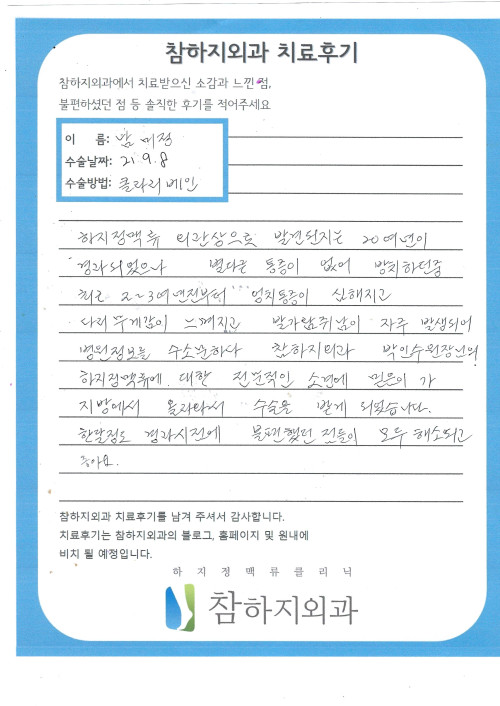 참하지외과 치료후기
참하지외과에서 치료받으신 소감과 느낀 점,
불편하셨던 점 등 솔직한 후기를 적어주세요
이 름:
수술날짜: 21. 9. 8
수술방법: 클라리베인
하지정맥류 외관상으로 발견된지는 20여년이
경과되었으나 별다른 통증이 없어 방치하던중
최근 2~3여년전부터 엉치통증이 심해지고
다리 무게감이 느껴지고 발가락쥐남이 자주 발생되어
병원정보를 수소문하다 참하지외과 박인수원장님의
하지정맥류에 대한 전문적인 소견에 믿음이 가
지방에서 올라와서 수술을 받게 되었습니다.
한달정도 경과시점에 불편했던 점들이 모두 해소되고
좋아요.
참하지외과 치료후기를 남겨 주셔서 감사합니다.
치료후기는 참하지외과의 블로그, 홈페이지 및 원내에
비치 될 예정입니다.
하지정맥류클리닉
참하지외과